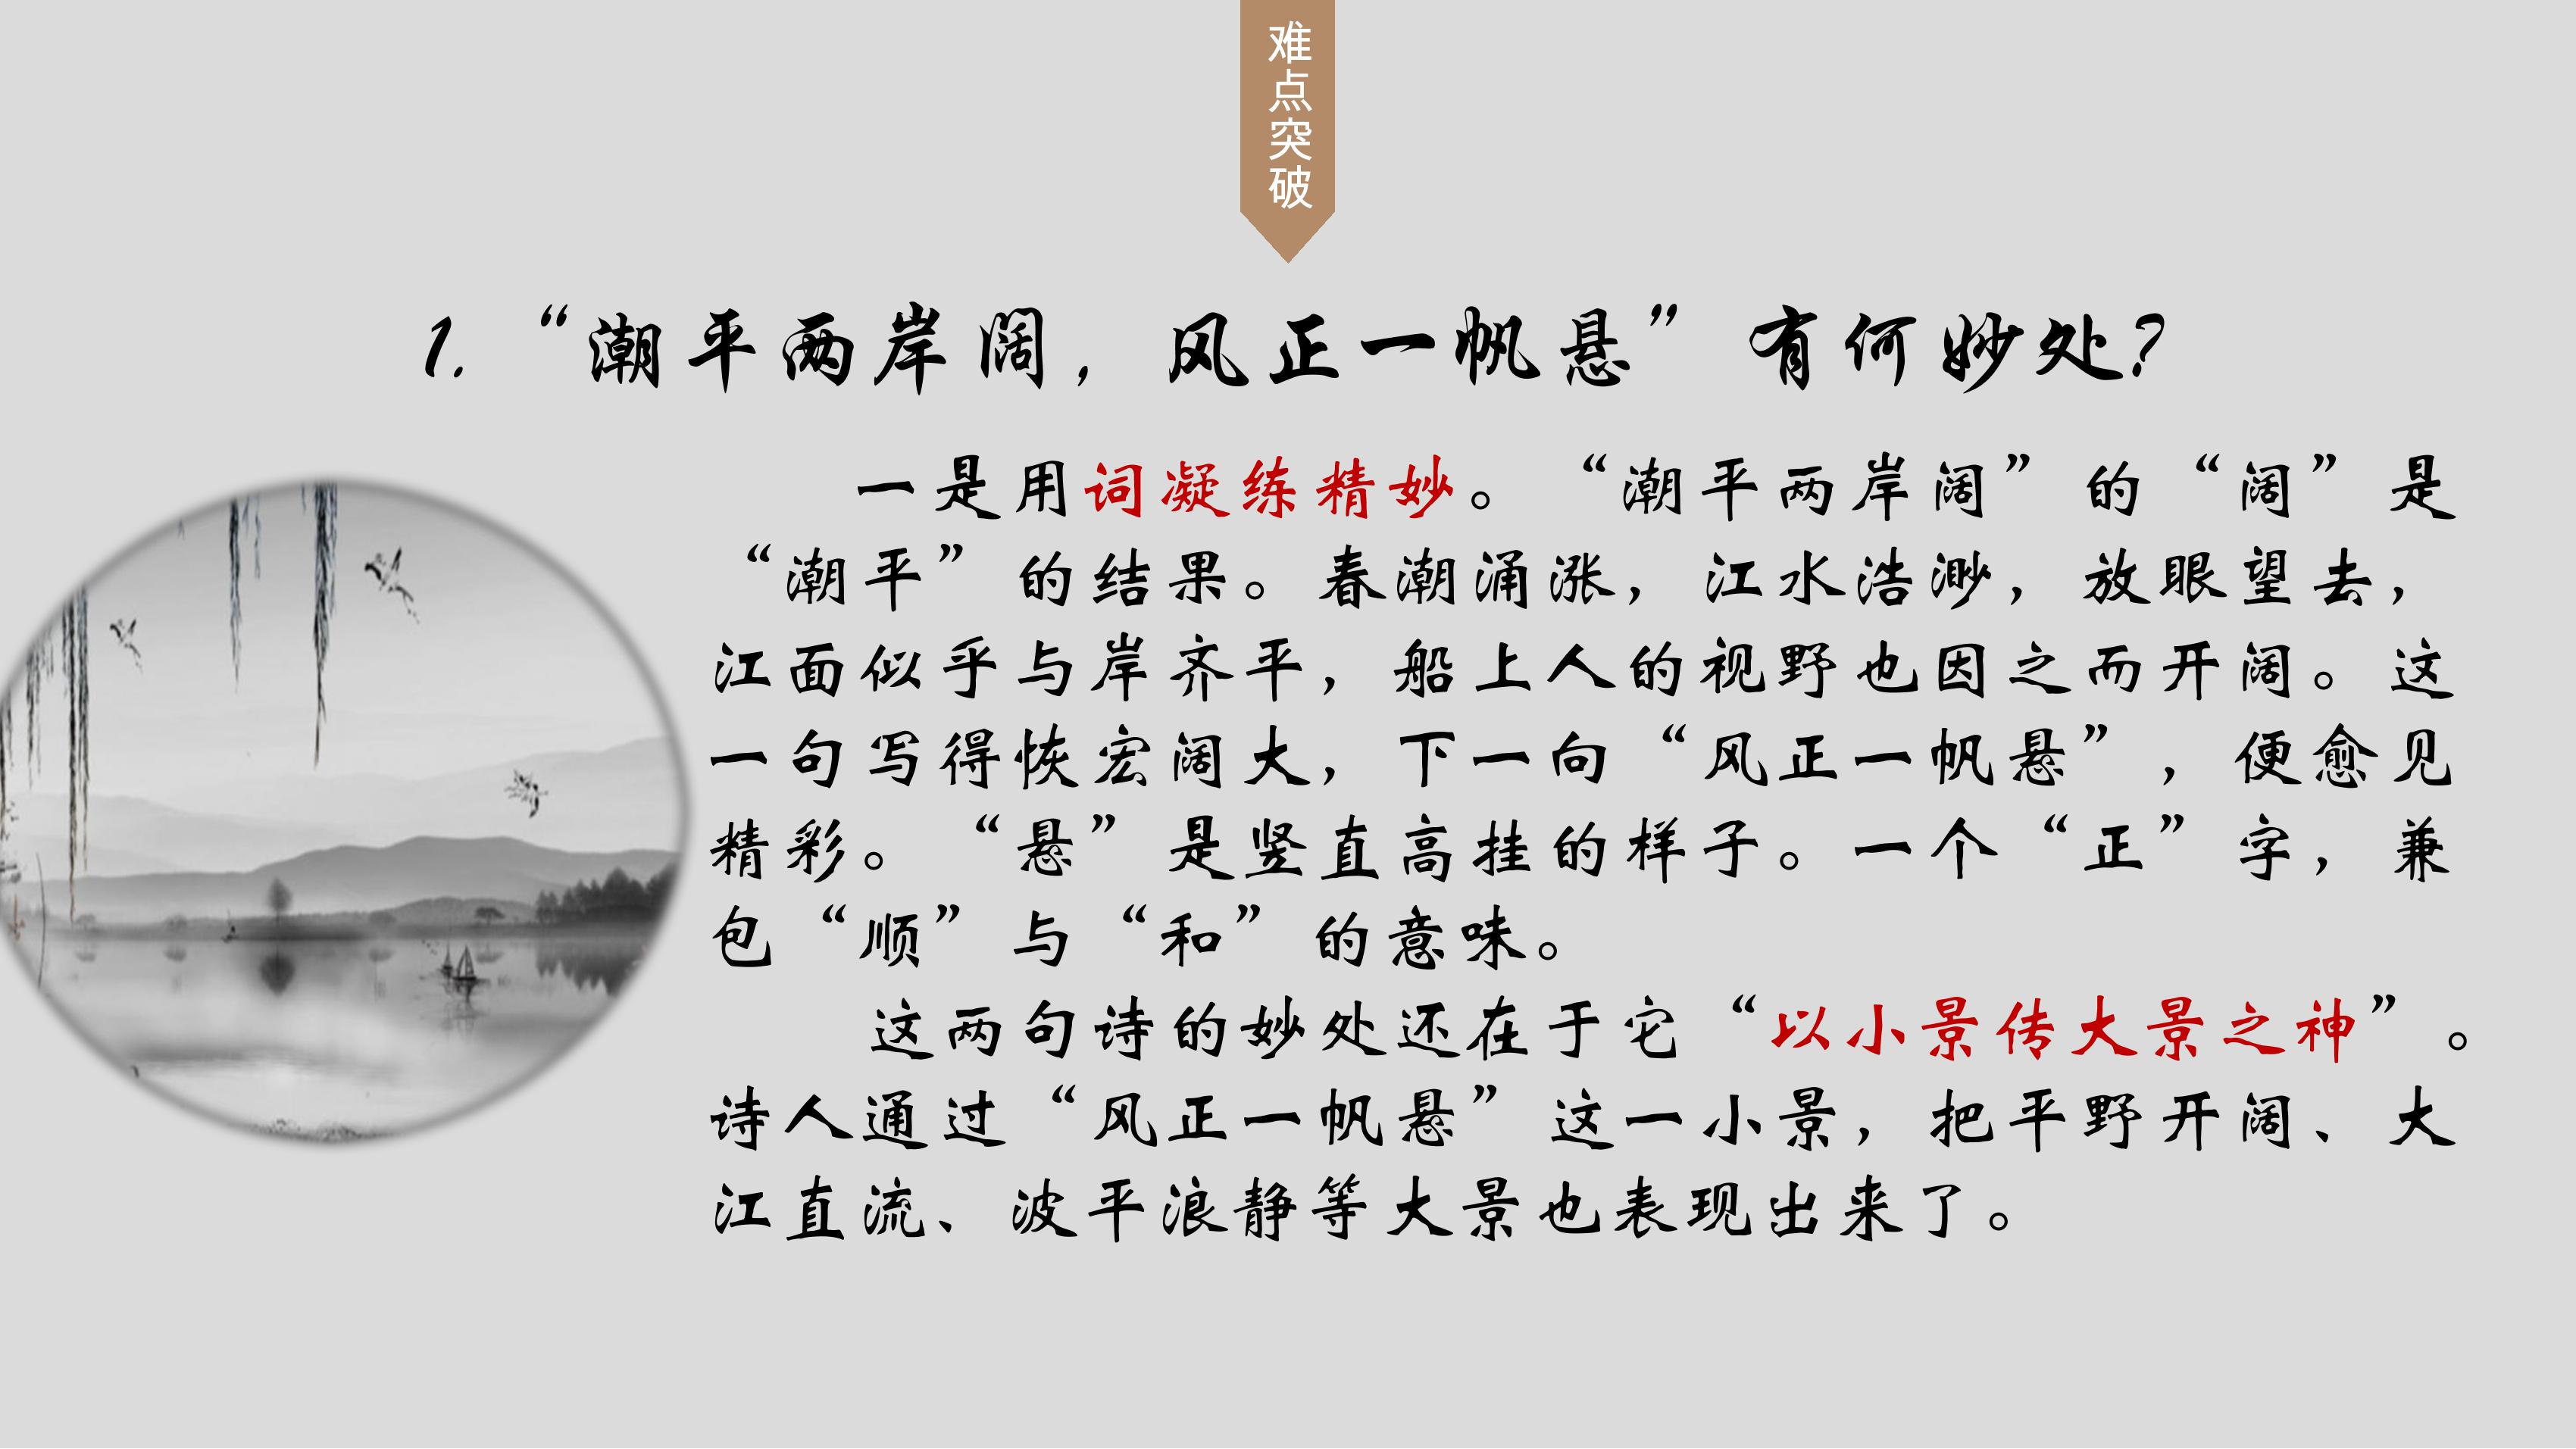 难点突破
1.“潮平两岸阔，风正一帆悬”有何妙处？
一是用词凝练精妙。“潮平两岸阔”的“阔”是
“潮平”的结果。春潮涌涨，江水浩渺，放眼望去，
江面似乎与岸齐平，船上人的视野也因之而开阔。这
一句写得恢宏阔大，下一向“风正一帆悬”，便愈见
精彩。“悬”是竖直高挂的样子。一个“正”字，兼
包“顺”与“和”的意味。
这两句诗的妙处还在于它“以小景传大景之神”。
诗人通过“风正一帆悬”这一小景，把平野开阔、大
江直流、波平浪静等大景也表现出来了。